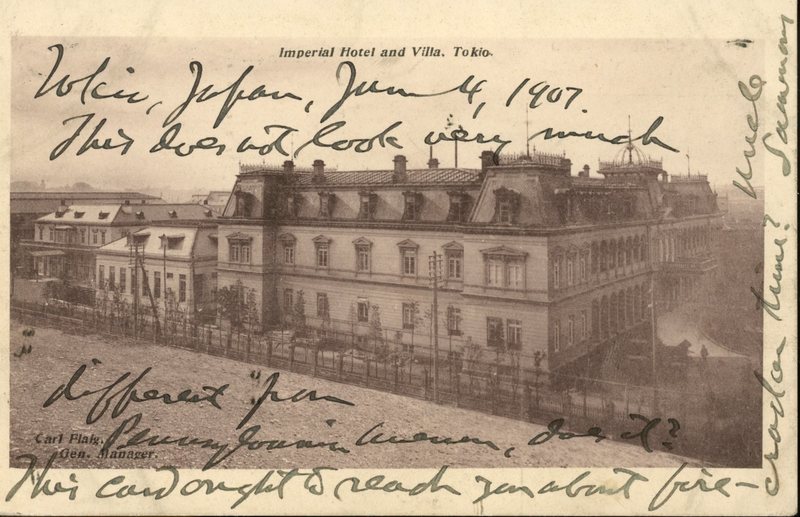 Imperial Hotel and Villa. Tokio.
Tokio, Japan, June 4, 1907.
This does not look very much
different from
Pennsylvania Avenue, does it?
Carl Flaig,
Gen. Manager.
This card ought to reach you about fire-
cracker time?
Uncle
Sammy